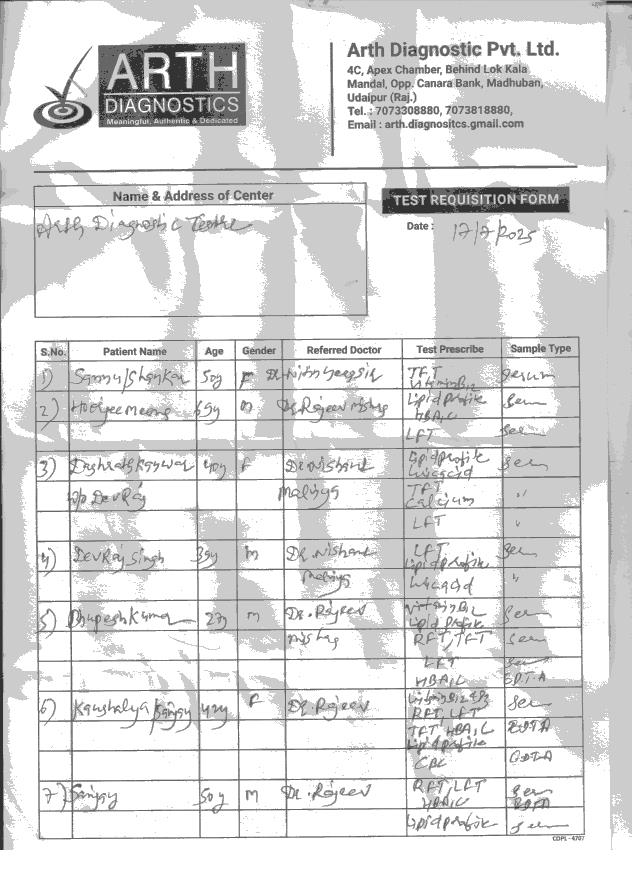 ARTH
DIAGNOSTICS
Meaningful, Authentic & Dedicated
Arth Diagnostic Pvt. Ltd.
4C, Apex Chamber, Behind Lok Kala
Mandal, Opp. Canara Bank, Madhuban,
Udaipur (Raj.)
Tel. : 7073308880, 7073818880,
Email : arth.diagnositcs.gmail.com
Name & Address of Center
TEST REQUISITION FORM
Arth Diagnostic
Date : 17/7/2025
S.No. Patient Name Age Gender Referred Doctor Test Prescribe Sample Type
1) 50y F TFT Serum
VitaminB12
2) m Dr. Rajeev mishra Lipid Profile Serum
HBA1C
LFT Serum
3) 40y F Dr. Nishant Lipid profile Serum
uricacid
w/o DevRaj TFT "
Calcium
LFT "
4) DevRaj Singh 39y m Dr. Nishant LFT Serum
Lipid profile
uricacid "
5) Bhupesh Kumar m Dr. Rajeev VitaminB12 Serum
Lipid profile
mishra RFT, TFT Serum
LFT Serum
HBA1C EDTA
6) Kaushalya / Sanjay F Dr. Rajeev Serum
RFT, LFT
TFT, HBA1C EDTA
Lipid profile
CBC EDTA
7) Sanjay 50y m Dr. Rajeev RFT, LFT Serum
HBA1C EDTA
Lipid profile Serum
CDPL - 4707